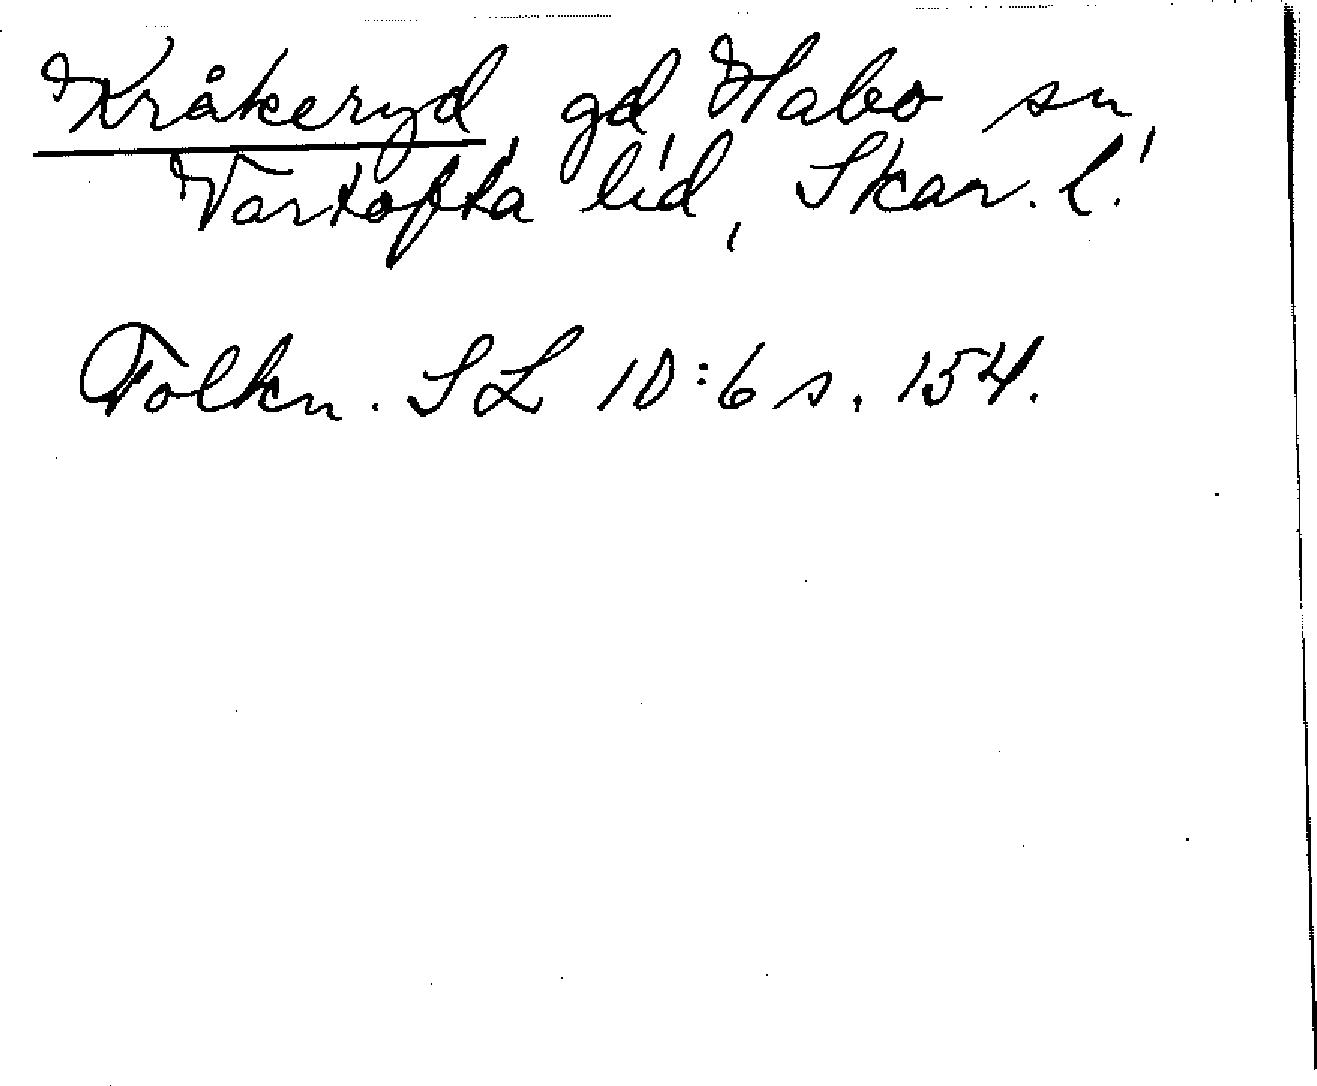 Kråkeryd, gd, Habo sn,
Vartofta hd, Skar. l.
Folkn. SL 10:6 s. 154.